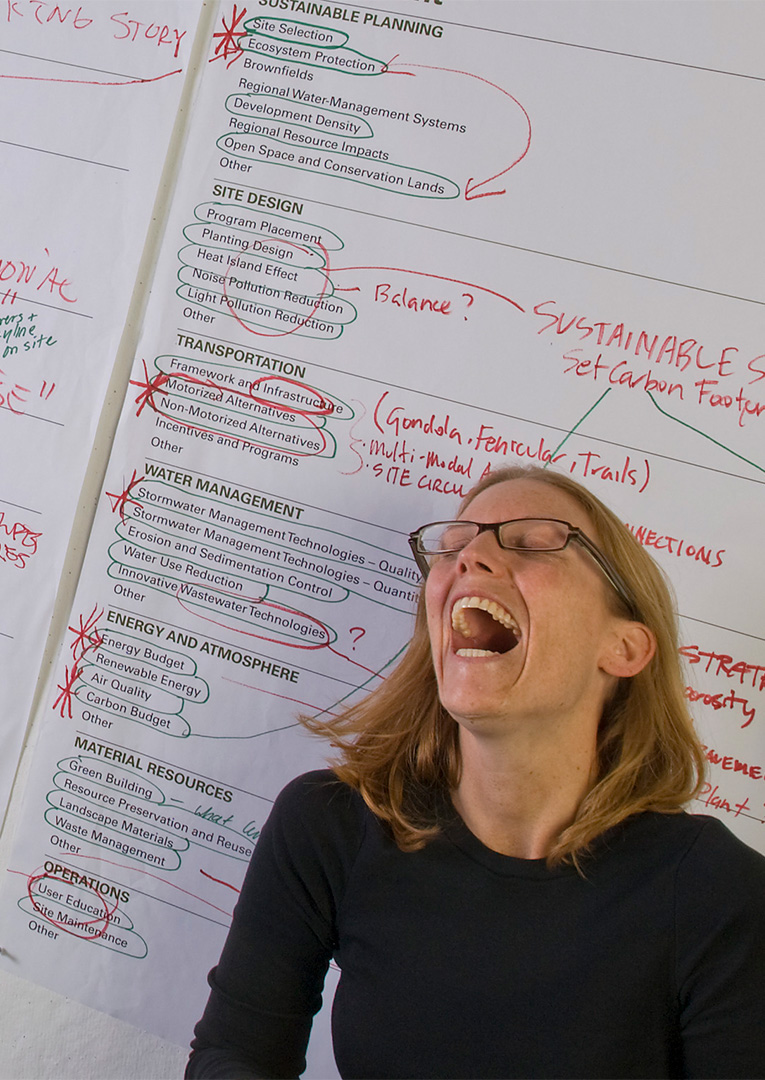 KING STORY
SUSTAINABLE PLANNING
Site Selection
Ecosystem Protection
Brownfields
Regional Water-Management Systems
Development Density
Regional Resource Impacts
Open Space and Conservation Lands
Other
SITE DESIGN
Program Placement
Planting Design
Heat Island Effect
Noise Pollution Reduction
Light Pollution Reduction
Other
Balance?
SUSTAINABLE S
Set Carbon Footpr
TRANSPORTATION
Framework and Infrastructure
Motorized Alternatives
Non-Motorized Alternatives
Incentives and Programs
Other
(Gondola, Fenicular, Trails)
• Multi-Modal A
• SITE CIRCU
WATER MANAGEMENT
Stormwater Management Technologies – Quality
Stormwater Management Technologies – Quantit
Erosion and Sedimentation Control
Water Use Reduction
Innovative Wastewater Technologies
Other
?
NNECTIONS
ENERGY AND ATMOSPHERE
Energy Budget
Renewable Energy
Air Quality
Carbon Budget
Other
STRAT
orosity
Plant
MATERIAL RESOURCES
Green Building
– what
Resource Preservation and Reuse
Landscape Materials
Waste Management
Other
OPERATIONS
User Education
Site Maintenance
Other
on site